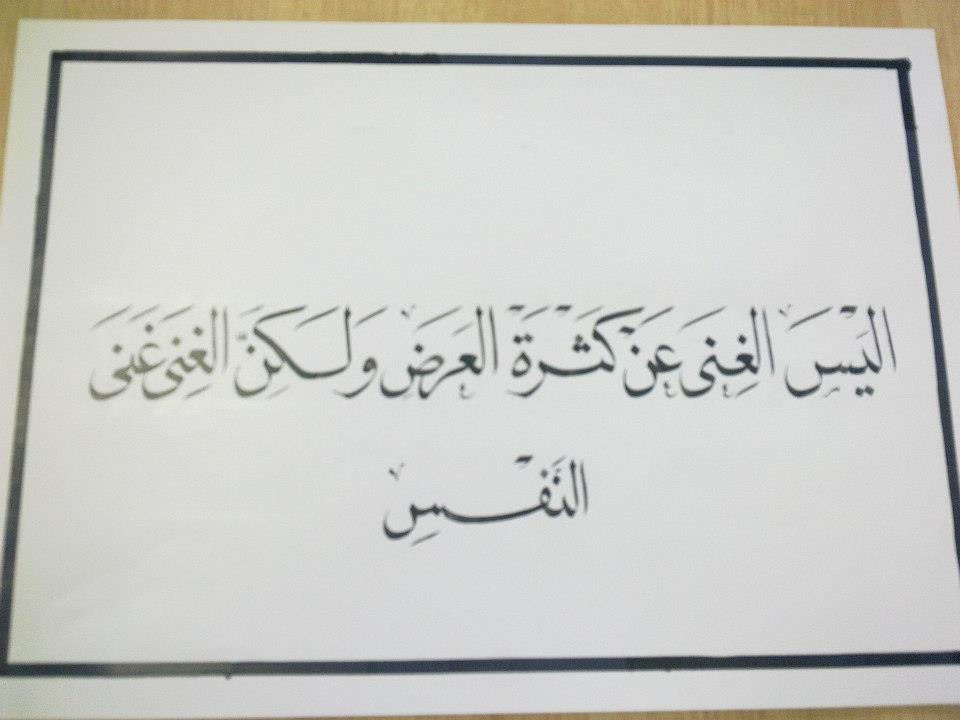 اليْسَ الغِنى عَنْ كَثْرَةَ العَرَضِ وَلَكِنَّ الغِنى غَنَى
النَفْسِ